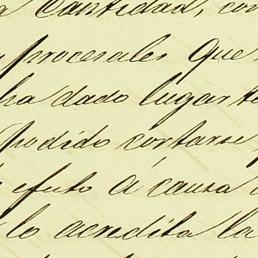 a Cantidad, con
procesales que
ha dado lugar to
podido cortarse
efuto á causa
lo acredita la